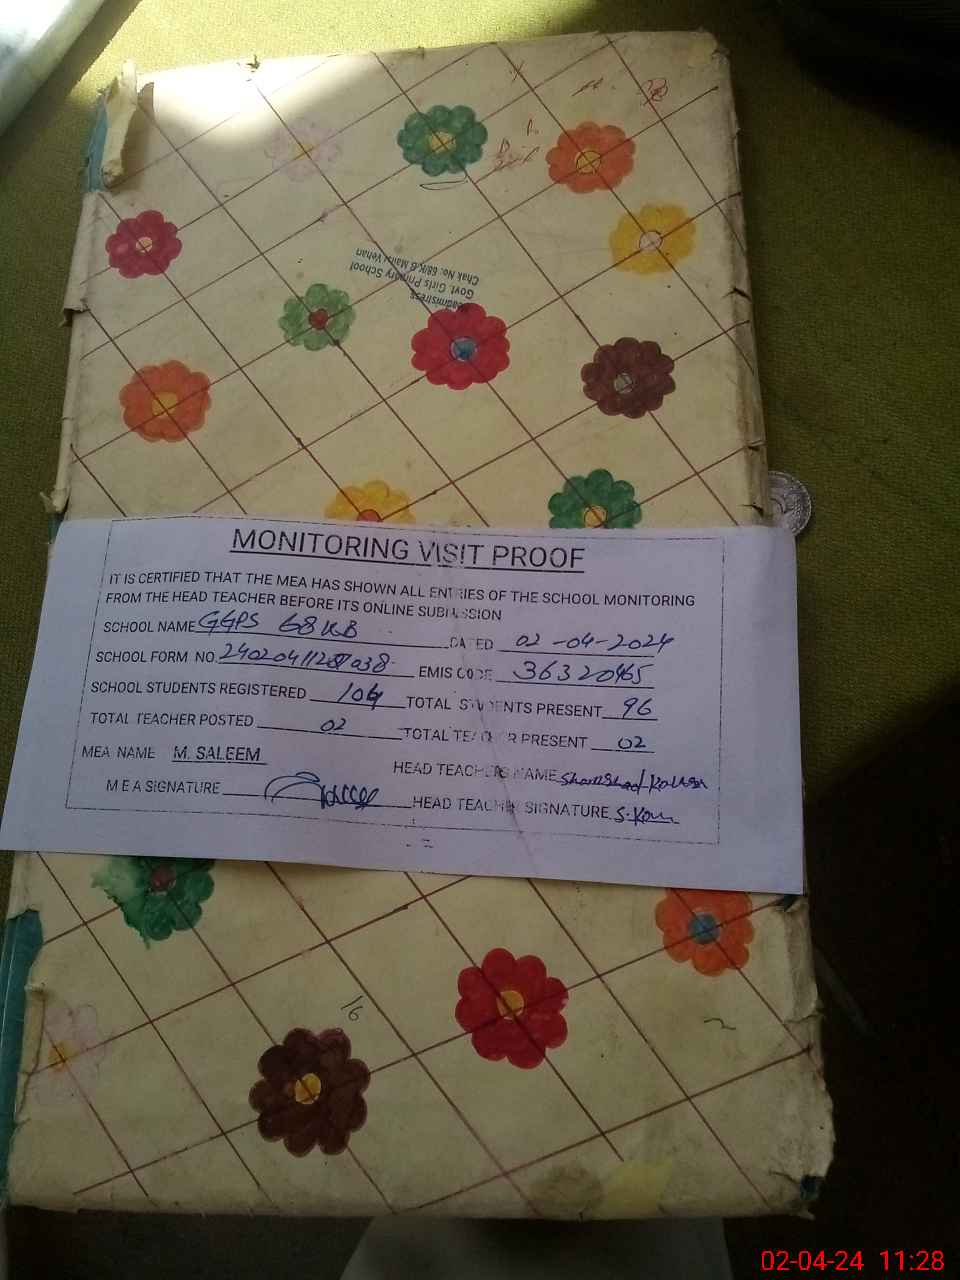 Headmistress
Govt. Girls Primary School
Chak No. 68/K.B Mailsi Vehari
MONITORING VISIT PROOF
IT IS CERTIFIED THAT THE MEA HAS SHOWN ALL ENTRIES OF THE SCHOOL MONITORING
FROM THE HEAD TEACHER BEFORE ITS ONLINE SUBMISSION
SCHOOL NAME GGPS 68 KB DATED 02-04-2024
SCHOOL FORM NO. EMIS CODE 36320465
SCHOOL STUDENTS REGISTERED 104 TOTAL STUDENTS PRESENT 96
TOTAL TEACHER POSTED 02 TOTAL TEACHER PRESENT 02
MEA NAME M. SALEEM HEAD TEACHERS NAME Shamshad Kousar
MEA SIGNATURE HEAD TEACHER SIGNATURE S.Kou
16
02-04-24 11:28